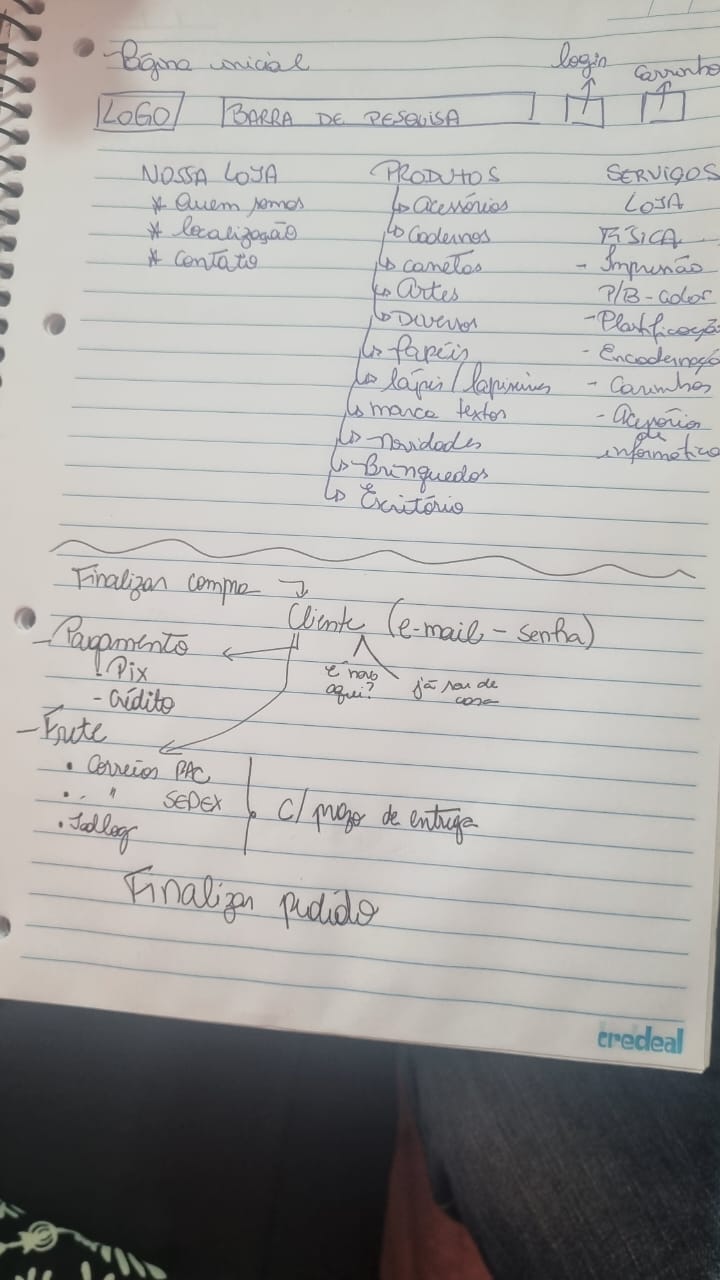 - Página inicial
login
carrinho
LOGO
BARRA DE PESQUISA
NOSSA LOJA
* Quem somos
* localização
* contato
PRODUTOS
↳ Acessórios
↳ Cadernos
↳ canetas
↳ Artes
↳ Diversos
↳ papéis
↳ lápis/lapiseiras
↳ marca textos
↳ novidades
↳ Brinquedos
↳ Escritório
SERVIÇOS
LOJA
FÍSICA
- Impressão
P/B - color
- Plastificação
- Encadernação
- Carimbos
- Acessórios
de
informática
Finalizar compra →
Cliente (e-mail - senha)
é novo
aqui?
já sou de
casa
- Pagamento
- Pix
- Crédito
- Frete
• Correios PAC
• " SEDEX
• Jadlog
c/ prazo de entrega
Finalizar pedido
credeal